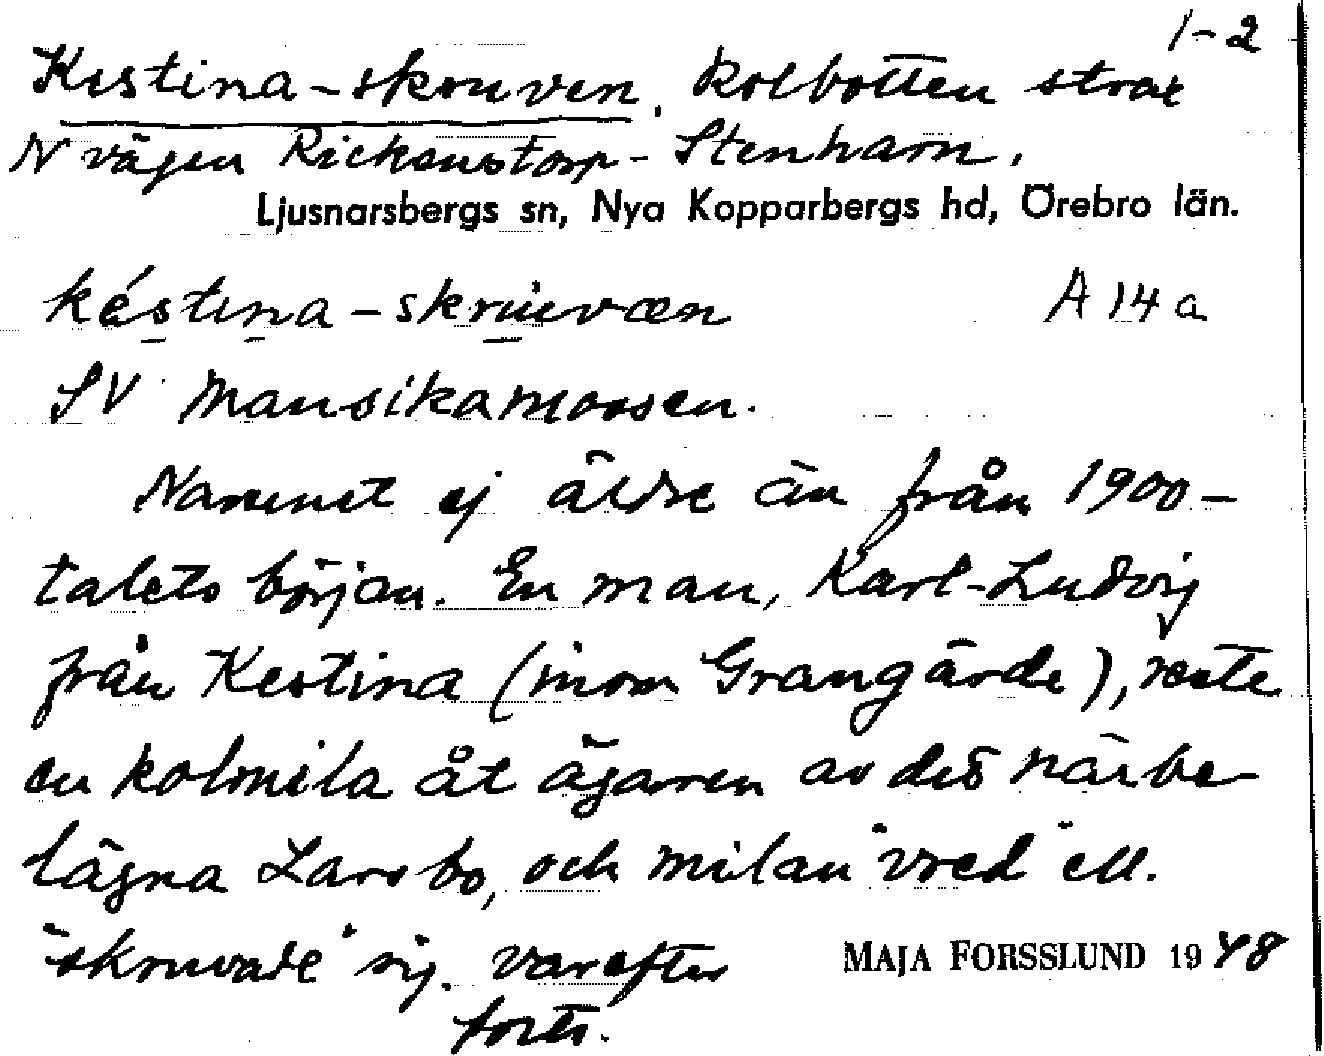 1-2
Kestina-skruven, kolbotten strax
N vägen Rickenstorp - Stenharn.
Ljusnarsbergs sn, Nya Kopparbergs hd, Örebro län.
késtina-skruevæn A 14 a
SV Mansikamossen.
Namnet ej äldre än från 1900-
talets början. En man, Karl-Ludvig
från Kestina (inom Grangärde), reste
en kolmila åt ägaren av det närbe-
lägna Larsbo, och milan "vred" ell.
"skruvade" sig. varefter
forts.
MAJA FORSSLUND 1948